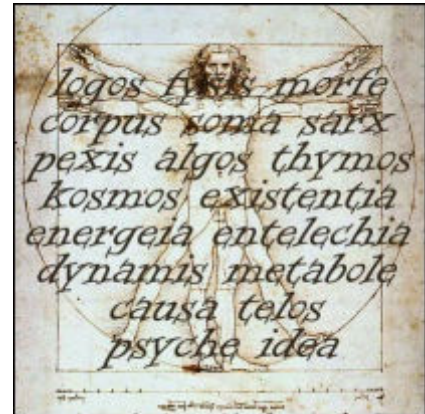 logos fysis morfe
corpus soma sarx
pexis algos thymos
kosmos existentia
energeia entelechia
dynamis metabole
causa telos
psyche idea